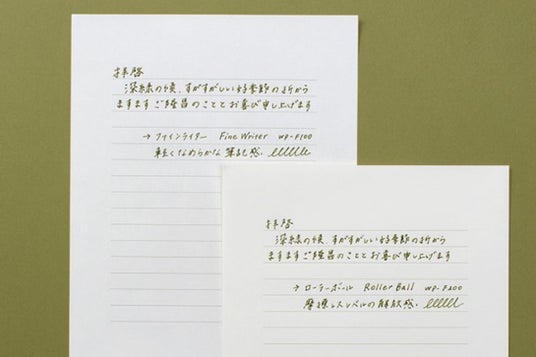 拝啓
深緑の候、すがすがしい好季節の折から
ますますご隆昌のこととお喜び申し上げます
→ファインライター Fine Writer WP-F100
軽くなめらかな筆記感。
拝啓
深緑の候、すがすがしい好季節の折から
ますますご隆昌のこととお喜び申し上げます
→ローラーボール Roller Ball WP-F200
摩擦レスレベルの解放感。